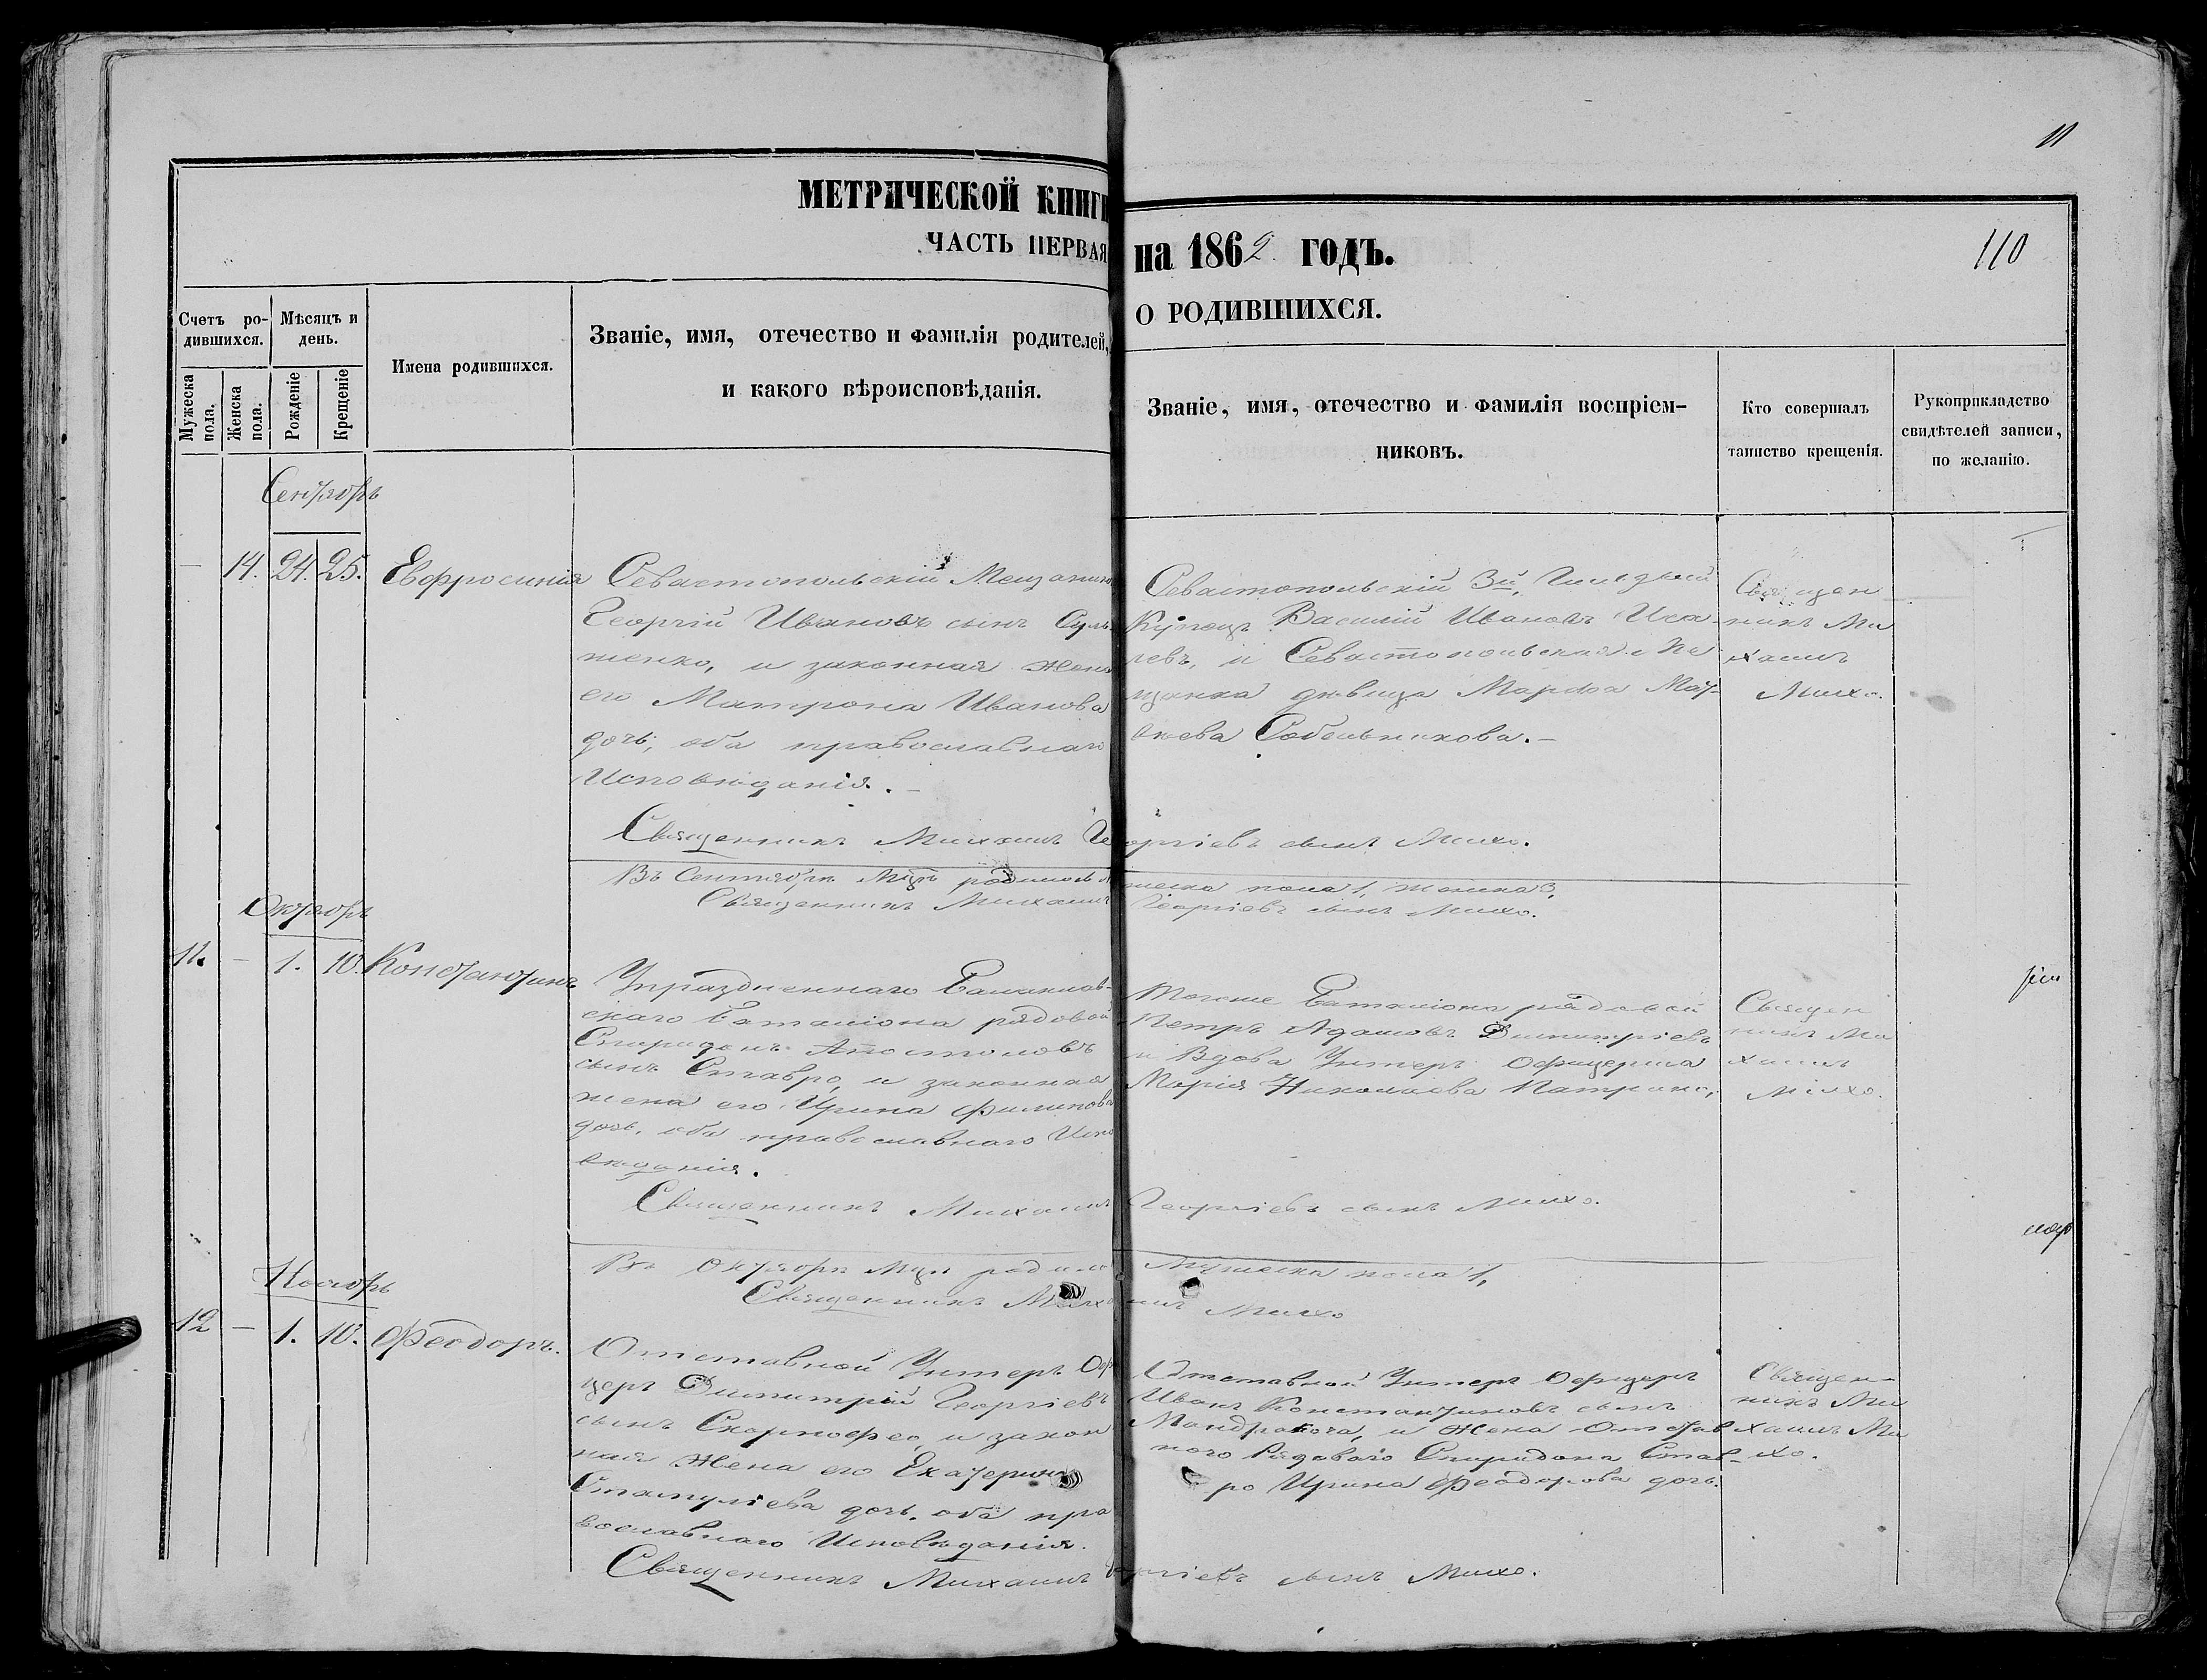 11
МЕТРИЧЕСКОЙ КНИГИ
на 1862 ГОДЪ.
110
ЧАСТЬ ПЕРВАЯ
О РОДИВШИХСЯ.
Счетъ ро-
дившихся.
Мѣсяцъ и
день.
Мужеска
пола.
Женска
пола.
Рожденіе
Крещеніе
Имена родившихся.
Званіе, имя, отечество и фамилія родителей,
и какого вѣроисповѣданія.
Званіе, имя, отечество и фамилія воспріем-
никовъ.
Кто совершалъ
таинство крещенія.
Рукоприкладство
свидѣтелей записи,
по желанію.
Сентябрь
— 14. 24. 25. Евфросинія
Севастопольскій Мещанинъ
Георгій Ивановъ сынъ Суль
женко, и законная жена
его Матрона Иванова
дочь, оба православнаго
Исповѣданія. —
Севастопольскій 3й, Гильдіи
Купецъ Василій Ивановъ Иса
евъ, и Севастопольская Ме
щанка дѣвица Марфа Мат-
вѣева Собельникова. —
Священ
никъ Ми
хаилъ
Михо.
Священникъ Михаилъ Георгіевъ сынъ Михо.
Въ Сентябрѣ Мцѣ родилось мужеска пола 1, женска 3,
Священникъ Михаилъ Георгіевъ сынъ Михо.
Октябрь
11. — 1. 10. Константинъ
Упраздненнаго Балаклав-
скаго Баталіона рядовой
Спиридонъ Апостоловъ
сынъ Ставро, и законная
жена его Ирина Филипова
дочь, оба православнаго Испо
вѣданія.
Тогоже Баталіона рядовой
Петръ Адамовъ Димитріевъ
и Вдова Унтеръ Офицерша
Марія Николаева
Священ
никъ Ми
хаилъ
Михо.
Священникъ Михаилъ Георгіевъ сынъ Михо.
Въ Октябрѣ Мцѣ родилось Мужеска пола 1,
Священникъ Михаилъ Михо
Ноябрь
12 — 1. 10. Феодоръ.
Отставной Унтеръ Офи
церъ Димитрій Георгіевъ
сынъ Скорпофео, и закон
ная Жена его Екатерина
Стамуліева дочь, оба пра
вославнаго Исповѣданія.
Отставной Унтеръ Офицеръ
Иванъ Константиновъ сынъ
и Жена Отстав
ного Рядового Спиридона Став-
ро Ирина Феодорова дочь.
Священ-
никъ Ми
хаилъ Ми
хо.
Священникъ Михаилъ Георгіевъ сынъ Михо.